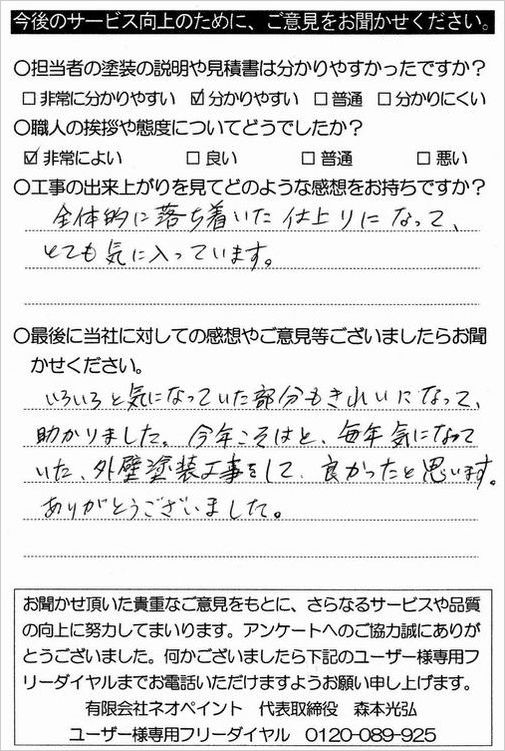 今後のサービス向上のために、ご意見をお聞かせください。
○担当者の塗装の説明や見積書は分かりやすかったですか？
□非常に分かりやすい ☑分かりやすい □普通 □分かりにくい
○職人の挨拶や態度についてどうでしたか？
☑非常によい □良い □普通 □悪い
○工事の出来上がりを見てどのような感想をお持ちですか？
全体的に落ち着いた仕上りになって、
とても気に入っています。
○最後に当社に対しての感想やご意見等ございましたらお聞
かせください。
いろいろと気になっていた部分もきれいになって、
助かりました。今年こそはと、毎年気になって
いた、外壁塗装工事をして、良かったと思います。
ありがとうございました。
お聞かせ頂いた貴重なご意見をもとに、さらなるサービスや品質
の向上に努力してまいります。アンケートへのご協力誠にありが
とうございました。何かございましたら下記のユーザー様専用フ
リーダイヤルまでお電話いただけますようお願い申し上げます。
有限会社ネオペイント 代表取締役 森本光弘
ユーザー様専用フリーダイヤル 0120-089-925